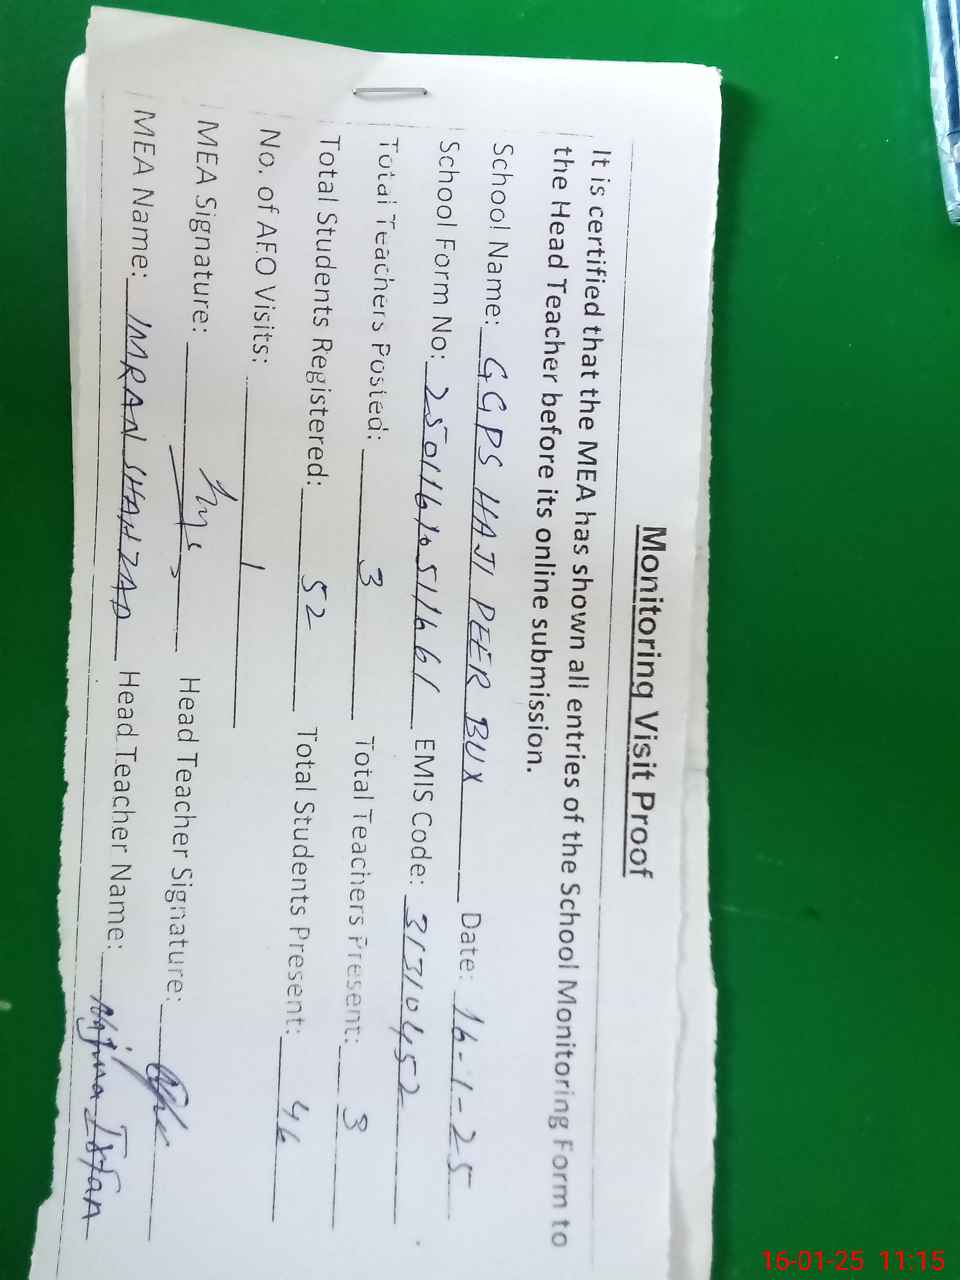 Monitoring Visit Proof
It is certified that the MEA has shown all entries of the School Monitoring Form to
the Head Teacher before its online submission.
School Name: GGPS HAJI PEER BUX Date: 16-1-25
School Form No: EMIS Code: 31310452
Total Teachers Posted: 3 Total Teachers Present: 3
Total Students Registered: 52 Total Students Present: 46
No. of AEO Visits: 1
MEA Signature: Head Teacher Signature:
MEA Name: IMRAN SHAHZAD Head Teacher Name: Najma Irfan
16-01-25 11:15